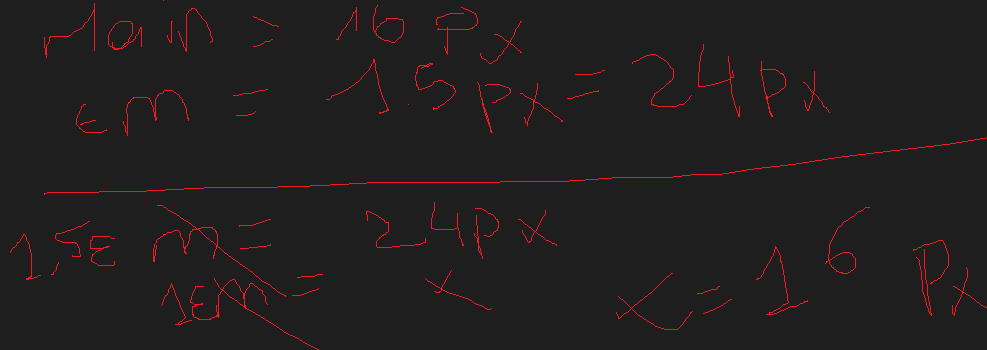 Main = 16 px
em = 1.5px = 24px
1,5E m = 24px
1Em = x x = 16 px